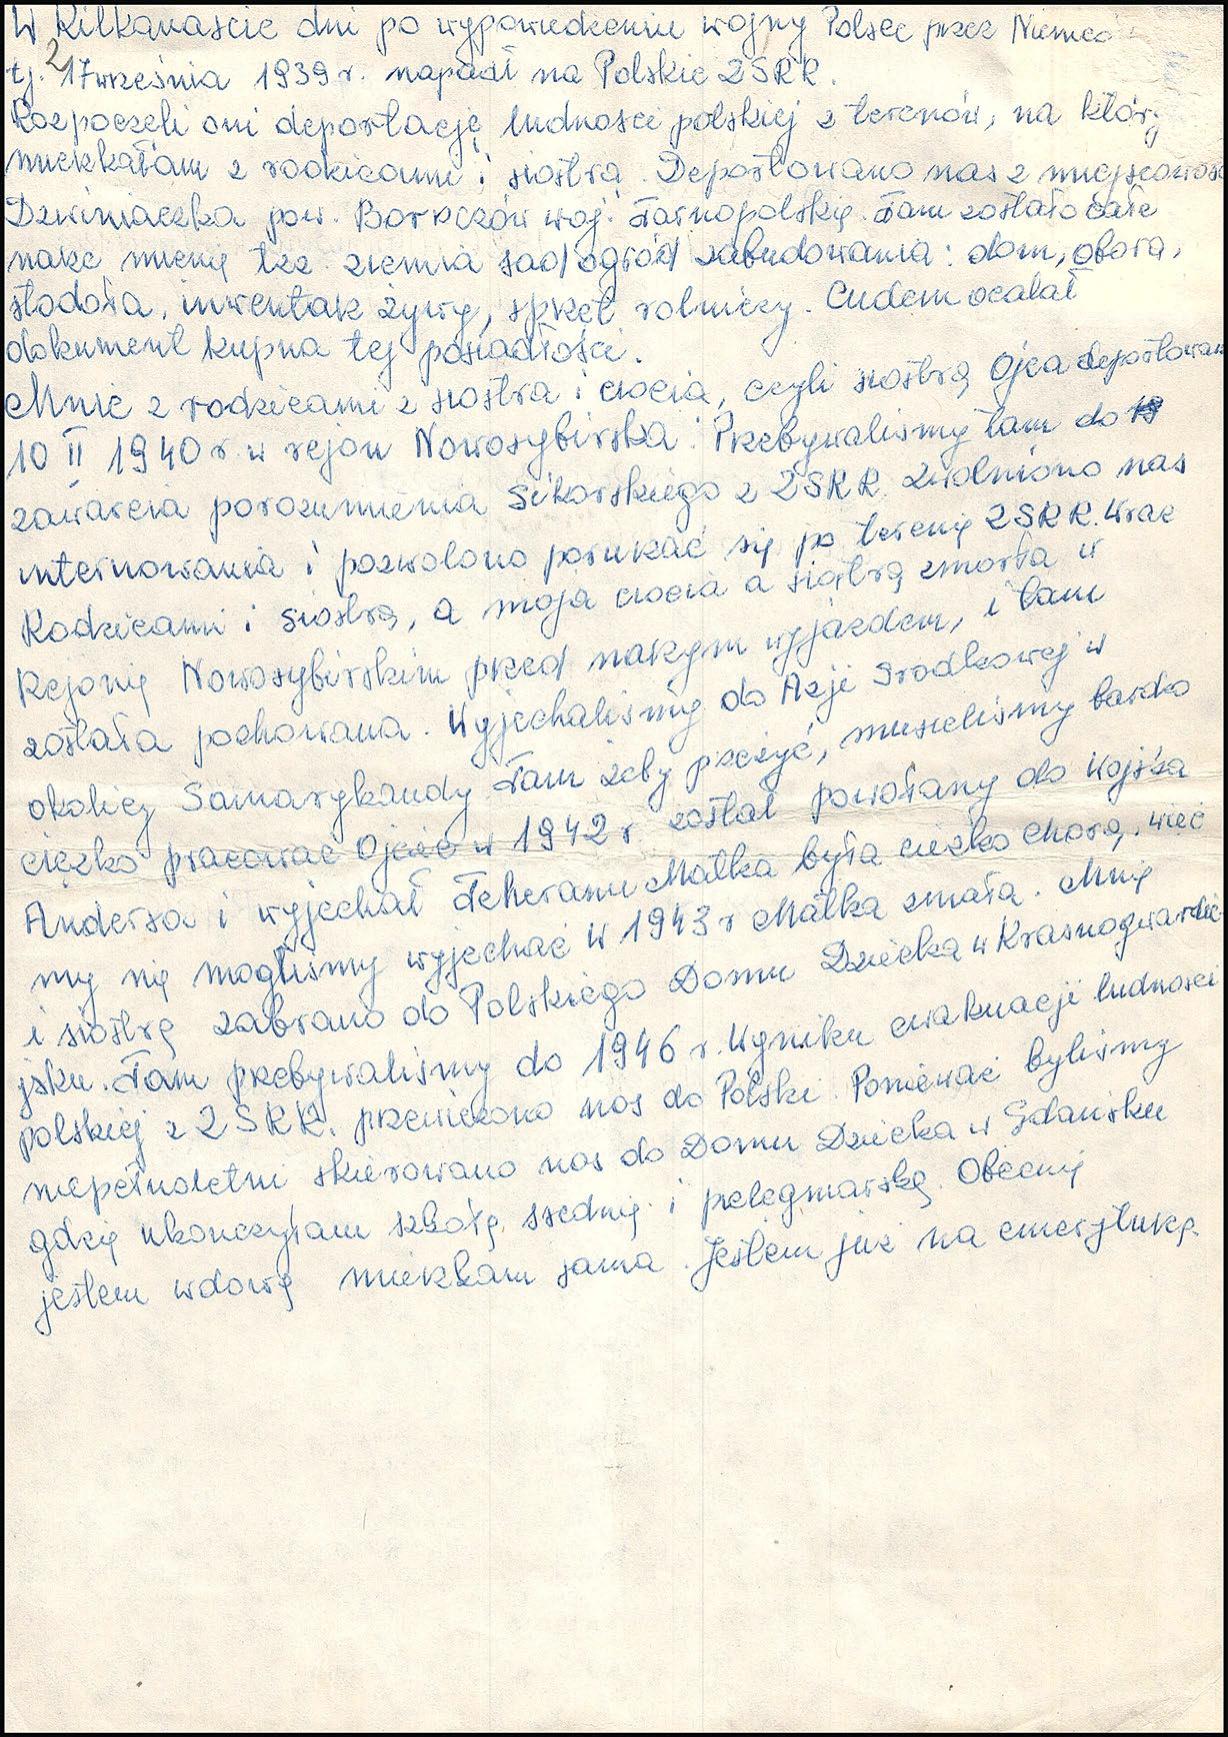 W Kilkanascie dni po wypowiedzeniu wojny Polsce przez Niemco
tj. 17 września 1939 r. napadł na Polskie ZSRR.
Rozpoczeli oni deportację ludnosci polskiej z terenów, na któr
mieszkałam z rodzicami i siostrą. Deportowano nas z miejscowos
Dzwiniaczka pow. Borszczów woj. Tarnopolskie. Tam zostało całe
nasze mienie tzz. ziemia sad ogród zabudowania: dom, obora,
stodoła, inwentaż żywy, sprzęt rolniczy. Cudem ocalał
dokument kupna tej posiadłości.
Mnie z rodzicami z siostra i ciocia, czyli siostrą Ojca deportowan
10 II 1940 r. w rejon Nowosybirska. Przebywalismy tam do
zawarcia porozumienia Sikorskiego z ZSRR. zwolniono nas
internowania i pozwolono poruszać się po terenie ZSRR. Wraz
Rodzicami i siostrą, a moja ciocia a siostra zmarła w
Rejonie Nowosybirskim przed naszym wyjazdem, i tam
została pochowana. Wyjechalismy do Azji Srodkowej w
okolicy Samarykandy. Tam żeby przeżyć, musielismy bardzo
ciężko pracować Ojciec w 1942 r został powołany do Wojska
Andersa i wyjechał Teheranu Matka była ciezko chora, wiec
my nie moglismy wyjechać w 1943 r Matka zmała. Mnie
i siostrę zabrano do Polskiego Domu Dziecka w Krasnogwardie
jsku. Tam przebywalismy do 1946 r. Wyniku ewakuacji ludnosci
polskiej z ZSRR, przewieziono nas do Polski. Ponieważ bylismy
niepełnoletni skierowano nas do Domu Dziecka w Gdańsku
gdzie ukonczyłam szkołę srednią i pielegniarską. Obecnie
jestem wdową mieszkam sama. Jestem już na emeryturze.